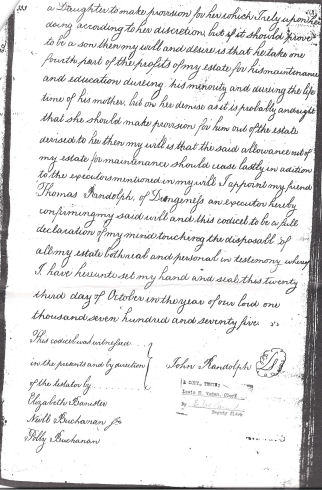 333
a Daughter to make provision for her which I rely upon her
doing according to her discretion, but if it should prove
to be a son then my will and desire is that he take one
fourth part of the profits of my estate for his maintenance
and education dureing his minority and dureing the life
time of his mother, but on her demise as it is probably and right
that she should make provision for him out of the estate
devised to her then my will is that the said allowance out of
my estate for maintenance should cease lastly in adition
to the executors mentioned in my will I appoint my friend
Thomas Randolph, of Dungeness an executor hereby
confirming my said will and this codicel to be a full
declaration of my mind touching the disposall of
all my estate both real and personal in testimony whereof
I have hereunto set my hand and seal this twenty
third day of October in the year of our lord one
thousand seven hundred and seventy five
This codicel was witnessed
in the presents and by direction
of the testator by
John Randolph
Elizabeth Banister
Neill Buchanan Jr
Polly Buchanan
A COPY, TESTE:
Clerk
By
Deputy Clerk